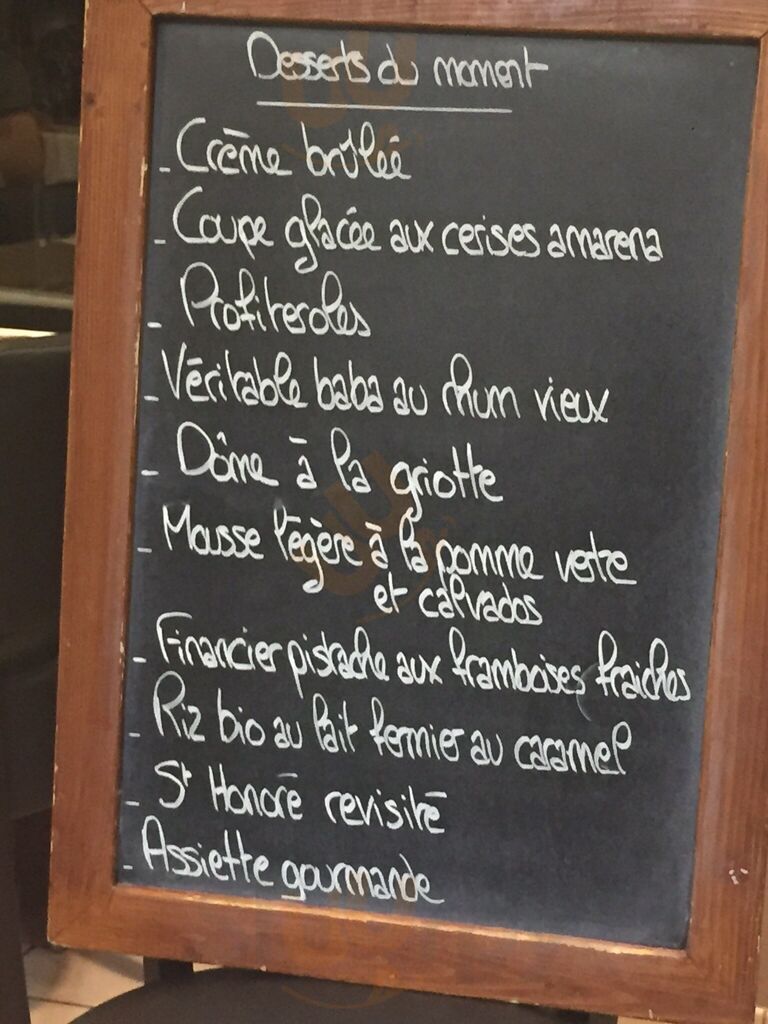 Desserts du moment
- Crème brûlée
- Coupe glacée aux cerises amarena
- Profiteroles
- Véritable baba au rhum vieux
- Dôme à la griotte
- Mousse légère à la pomme verte
et calvados
- Financier pistache aux framboises fraiches
- Riz bio au lait fermier au caramel
- St Honoré revisité
- Assiette gourmande